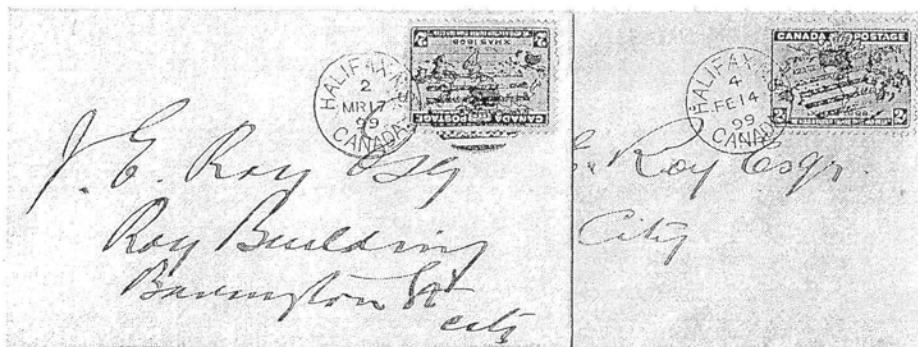 HALIFAX
2
MR 17
99
CANADA
2 2
XMAS 1898
CANADA POSTAGE
J. E. Roy Esq
Roy Building
Barrington St
city
HALIFAX
4
FE 14
99
CANADA
CANADA POSTAGE
2 2
Roy Esqr.
City